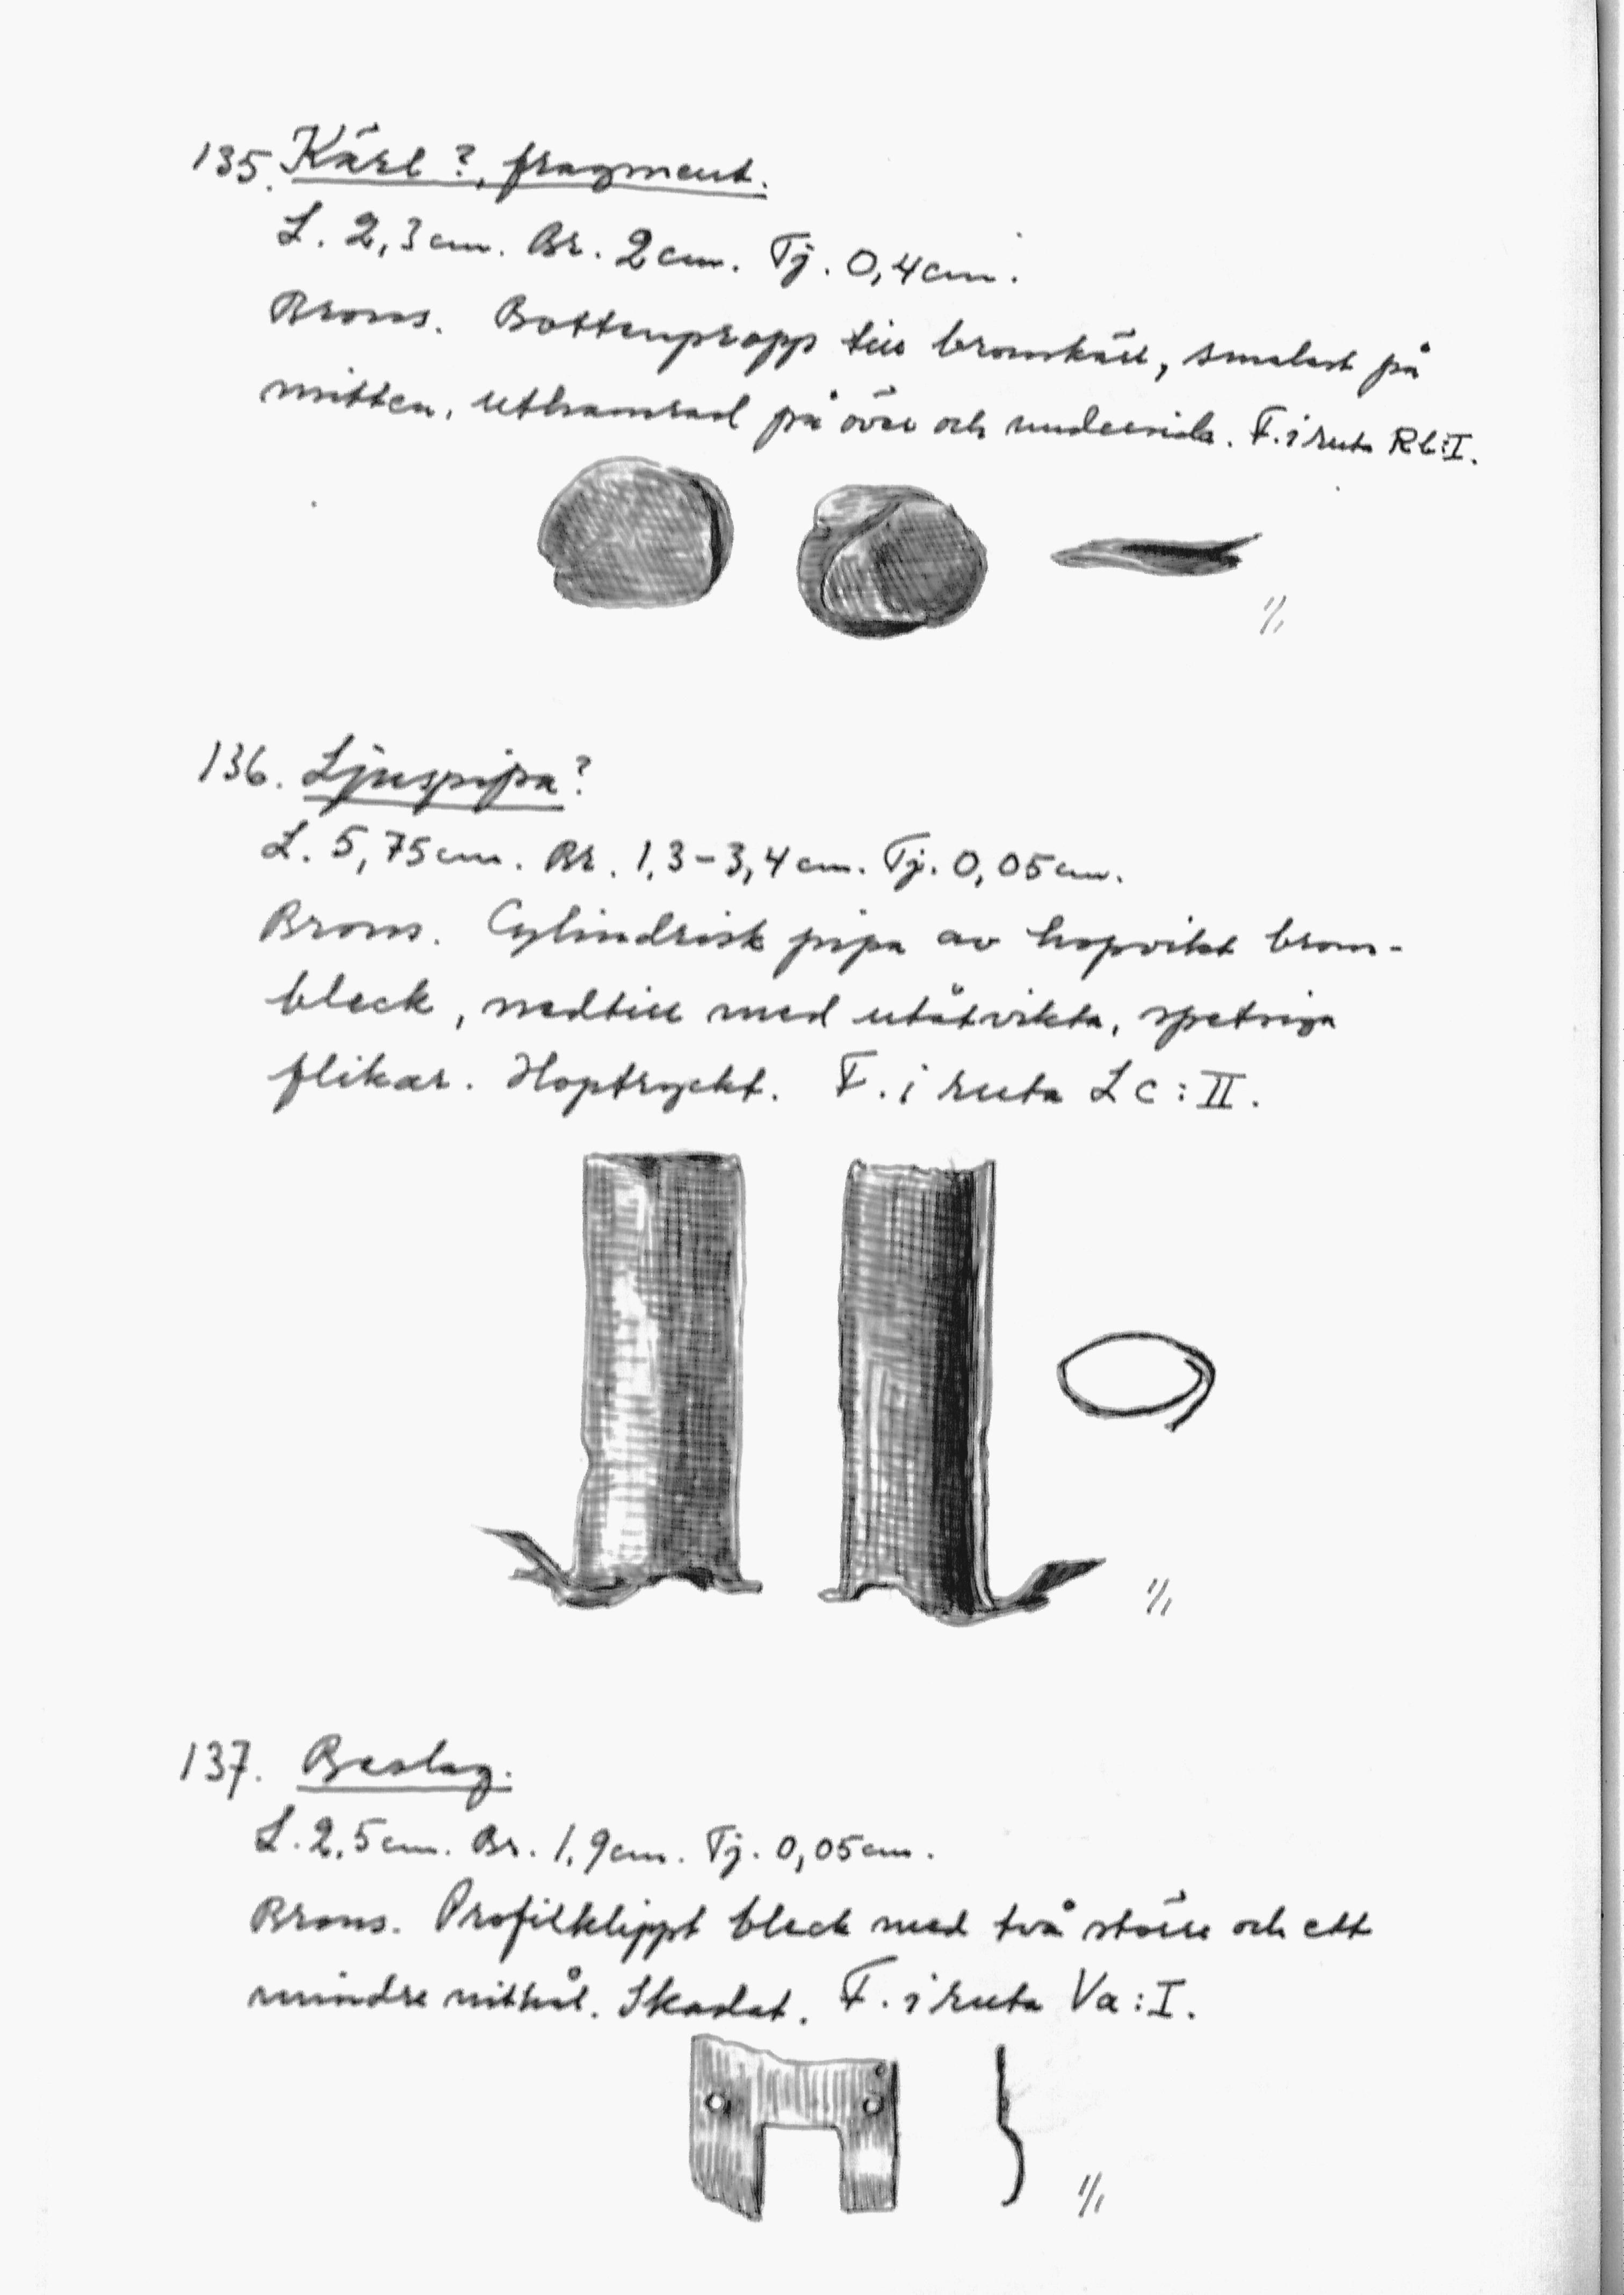 135. Kärl?, fragment.
L. 2,3cm. Br. 2cm. Tj. 0,4cm.
Brons. Bottenpropp till bronskärl, smalast på
mitten, uthamrad på över och undersida. F. i ruta Rb:I.
1/1
136. Ljuspipa?
L. 5,75cm. Br. 1,3-3,4cm. Tj. 0,05cm.
Brons. Cylindrisk pipa av hopvikt brons-
bleck, nedtill med utåtvikta, spetsiga
flikar. Hoptryckt. F. i ruta Lc:II.
1/1
137. Beslag.
L. 2,5cm. Br. 1,9cm. Tj. 0,05cm.
Brons. Profilklippt bleck med två större och ett
mindre nithål. Skadat. F. i ruta Va:I.
1/1